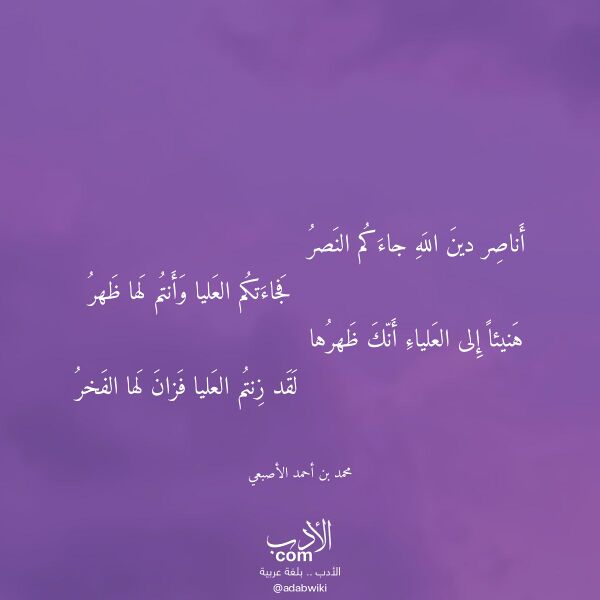 أَناصِر دينَ اللَهِ جاءَكُم النَصرُ
فَجاءَتكُم العَليا وَأَنتُم لَها ظَهرُ
هَنيئاً إِلى العَلياءِ أَنّكَ ظَهرُها
لَقَد زِنتُم العَليا فَزانَ لَها الفَخرُ
محمد بن أحمد الأصبعي
الأدب
com
الأدب .. بلغة عربية
@adabwiki